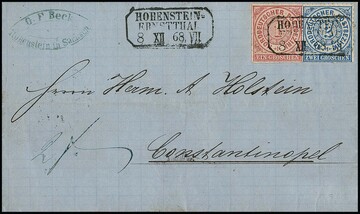 G. F. Beck
HOHENSTEIN-
ERNSTTHAL
8 XII 68. VII
HOHENSTEIN
8 XII
EIN GROSCHEN
ZWEI GROSCHEN
Herrn Herm. A. Holstein
Constantinopel